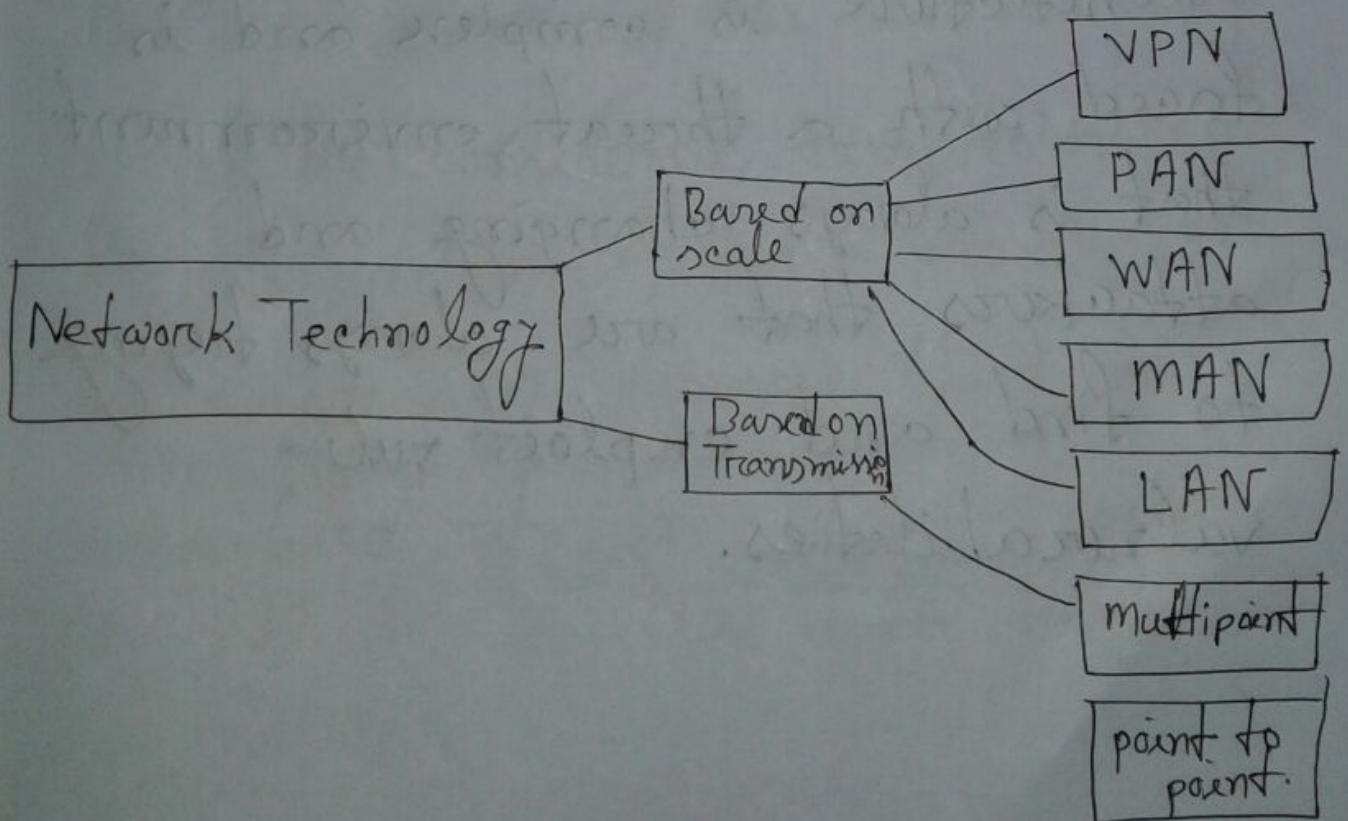 Network Technology
Based on
scale
Based on
Transmission
VPN
PAN
WAN
MAN
LAN
multipoint
point to
point.